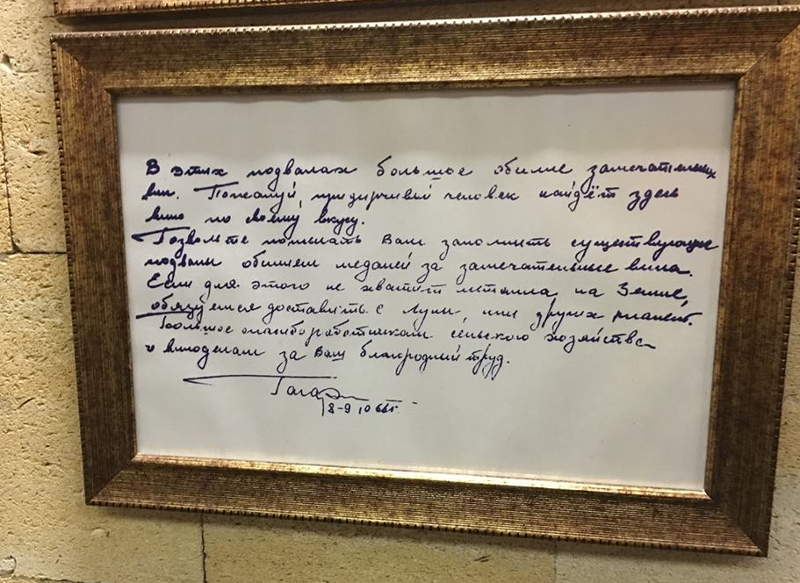 В этих подвалах большое обилие замечательных
вин. Пожалуй, придирчивый человек найдёт здесь
вино по своему вкусу.
Позвольте пожелать Вам заполнить существующие
подвалы обилием медалей за замечательные вина.
Если для этого не хватит металла на Земле,
обязуемся доставить с Луны, или других планет.
Большое спасибо работникам сельского хозяйства
и виноделам за Ваш благородный труд.
Гагарин
8-9 10 66г.